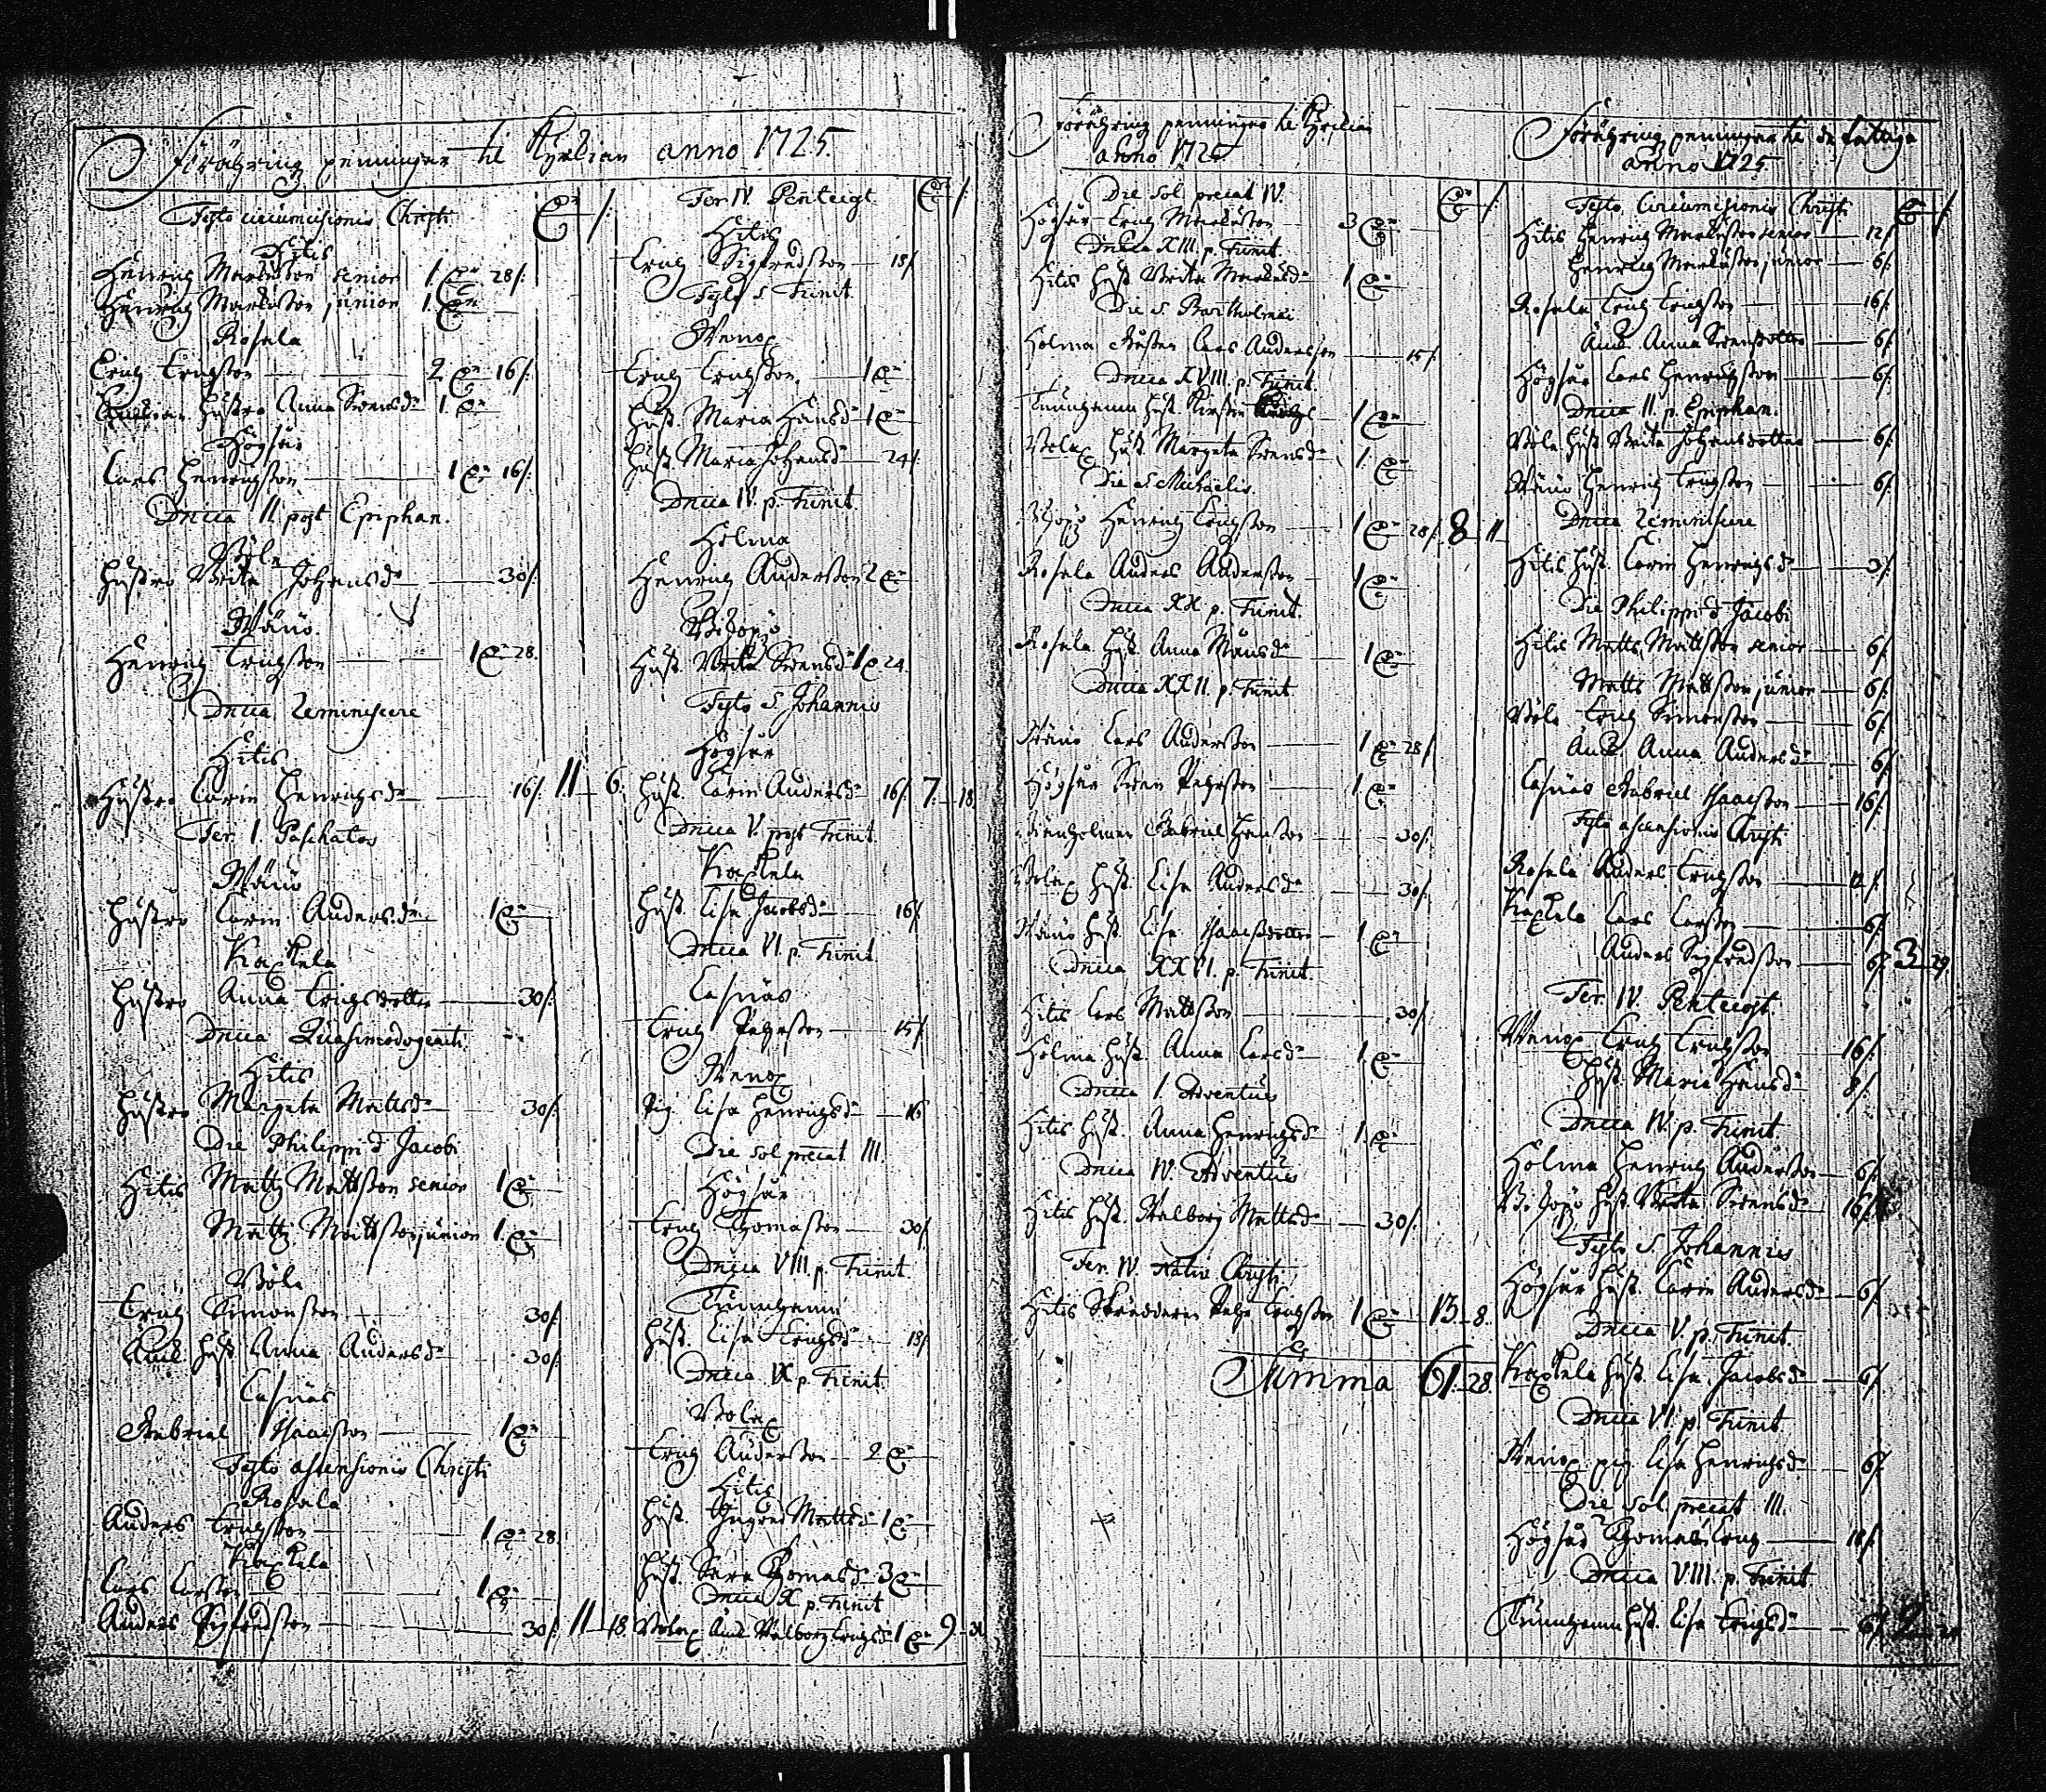 Förähring peninger til Kyrkian anno 1725.
Festo circumcisionis Christi
Hitis
Henrich Markusson senior 1 28/.
Henrich Markusson junior 1
Rosala
Erich Erichsson 2 16/.
hustro Anna Svensdr 1
Högsår
Lars Henrichsson 1 16/.
Dnica II. post Epiphan.
Böle
Hustro Brita Johansdr 30/.
Wänö.
Henrich Erichsson 1 28.
Dnica Reminiscere
Hitis
Hustro Carin Henrichsdr 16/. 11 6.
Fer. 1. Paschatos
Wänö
Hustro Carin Andersdr 1
Kaxkela
Hustro Anna Erichsdotter 30/.
Dnica Quasimodogeniti
Hitis
Hustro Margeta Mattsdr 30/.
Die Philippi & Jacobi
Hitis Matts Mattsson senior 1
Matts Mattsson junior 1
Böle
Erich Simonsson 30/.
hust. Anna Andersdr 30/.
Casnäs
Gabriel Isaacsson 1
Festo ascensionis Christi
Rosala
Anders Erichsson 1 28.
Kaxkela
Lars Larsson 1
Anders Sigfredsson 30/. 11 18.
Fer. IV. Pentecost.
Hitis
Erich Sigfredsson 18/.
Festo S. Trinit.
Wenox
Erich Erichsson 1
Hust. Maria Hansdr 1
Hust. Maria Johansdr 24/.
Dnica IV. p. Trinit.
Holma
Henrich Andersson 2
Bisopö
Hust. Brita Svensdr 1 24.
Festo S. Johannis
Högsår
Hust. Carin Andersdr 16/. 7. 18.
Dnica V. post Trinit.
Kaxkela
Hust. Lisa Jacobsdr 16/.
Dnica VI. p. Trinit.
Casnäs
Erich Pehrsson 15/.
Wenox
Pig. Lisa Henrichsdr 16
Die sol. precat. III.
Högsår
Erich Thomasson 30/.
Dnica VIII. p. Trinit.
Hust. Lisa Erichsdr 18/.
Dnica IX p. Trinit.
Bolax
Erich Andersson 2
Hitis
Hust. Ingred Mattsdr 1
Hust. Sara Thomasdr 3
Dnica X p. Trinit
Bolax Walborg Erichsdr 1 9
Förähring peninger til Kyrkian
anno 1725
Die sol. precat. IV.
Högsår Erich Markusson 3
Dnica XIII. p. Trinit.
Hitis Hust. Brita Markusdr 1
Die S. Bartholmæi
Holma Lars Andersson 15/.
Dnica XVIII. p. Trinit.
Hust. Kirstin 1
Bolax Hust. Margeta Svensdr 1
Die S. Michaelis.
Bisopö Henrich Erichsson 1 28/. 8 11
Rosala Anders Andersson 1
Dnica XX p. Trinit.
Rosala Hust. Anna Månsdr 1
Dnica XXII. p. Trinit
Wänö Lars Andersson 1 28/
Högsår Sven Pehrsson 1
Gabriel Hansson 30/.
Bolax Hust. Lisa Andersdr 30/.
Wänö Hust. Lisa Isaacsdotter 1
Dnica XXVI. p. Trinit.
Hitis Lars Mattsson 30/.
Holma Hust. Anna Larsdr 1
Dnica I. Adventus
Hitis Hust. Anna Henrichsdr 1
Dnica IV. Adventus
Hitis Hust. Walborg Mattsdr 30/.
Fer. IV. Nativ. Christi.
Hitis Skräddaren Pehr Erichsson 1 13. 8.
Summa 61. 28.
Förähring peninger til de fattiga
anno 1725.
Festo Circumcisionis Christi
Hitis Henrich Markusson senior 12/
Henrich Markusson junior 6/.
Rosala Erich Erichsson 16/.
Anna Svensdotter 6/.
Högsår Lars Henrichsson 6/.
Dnica II. p. Epiphan.
Böle Hust. Brita Johansdotter 6/.
Wänö Henrich Erichsson 6/.
Dnica Reminiscere
Hitis Hust. Carin Henrichsdr
Die Philippi & Jacobi
Hitis Matts Mattsson senior 6/.
Matts Mattsson junior 6/.
Böle Erich Simonsson 6/.
Anna Andersdr 6/.
Casnäs Gabriel Isaacsson 16/.
Festo ascensionis Christi
Rosala Anders Erichsson 12/.
Kaxkela Lars Larsson 6/.
Anders Sigfredsson 6/. 3 29.
Fer. IV. Pentecost.
Wenox Erich Erichsson 16/.
Hust. Maria Hansdr 8/.
Dnica IV. p. Trinit.
Holma Henrich Andersson 6/.
Bisopö Hust. Brita Svensdr 16/.
Festo S. Johannis
Högsår Hust. Carin Andersdr 6/.
Dnica V. p. Trinit.
Kaxkela Hust. Lisa Jacobsdr 6/.
Dnica VI. p. Trinit.
Wenox pig. Lisa Henrichsdr 6/.
Die sol. precat. III.
Högsår Erich 18/.
Dnica VIII. p. Trinit
Hust. Lisa Erichsdr 6/.